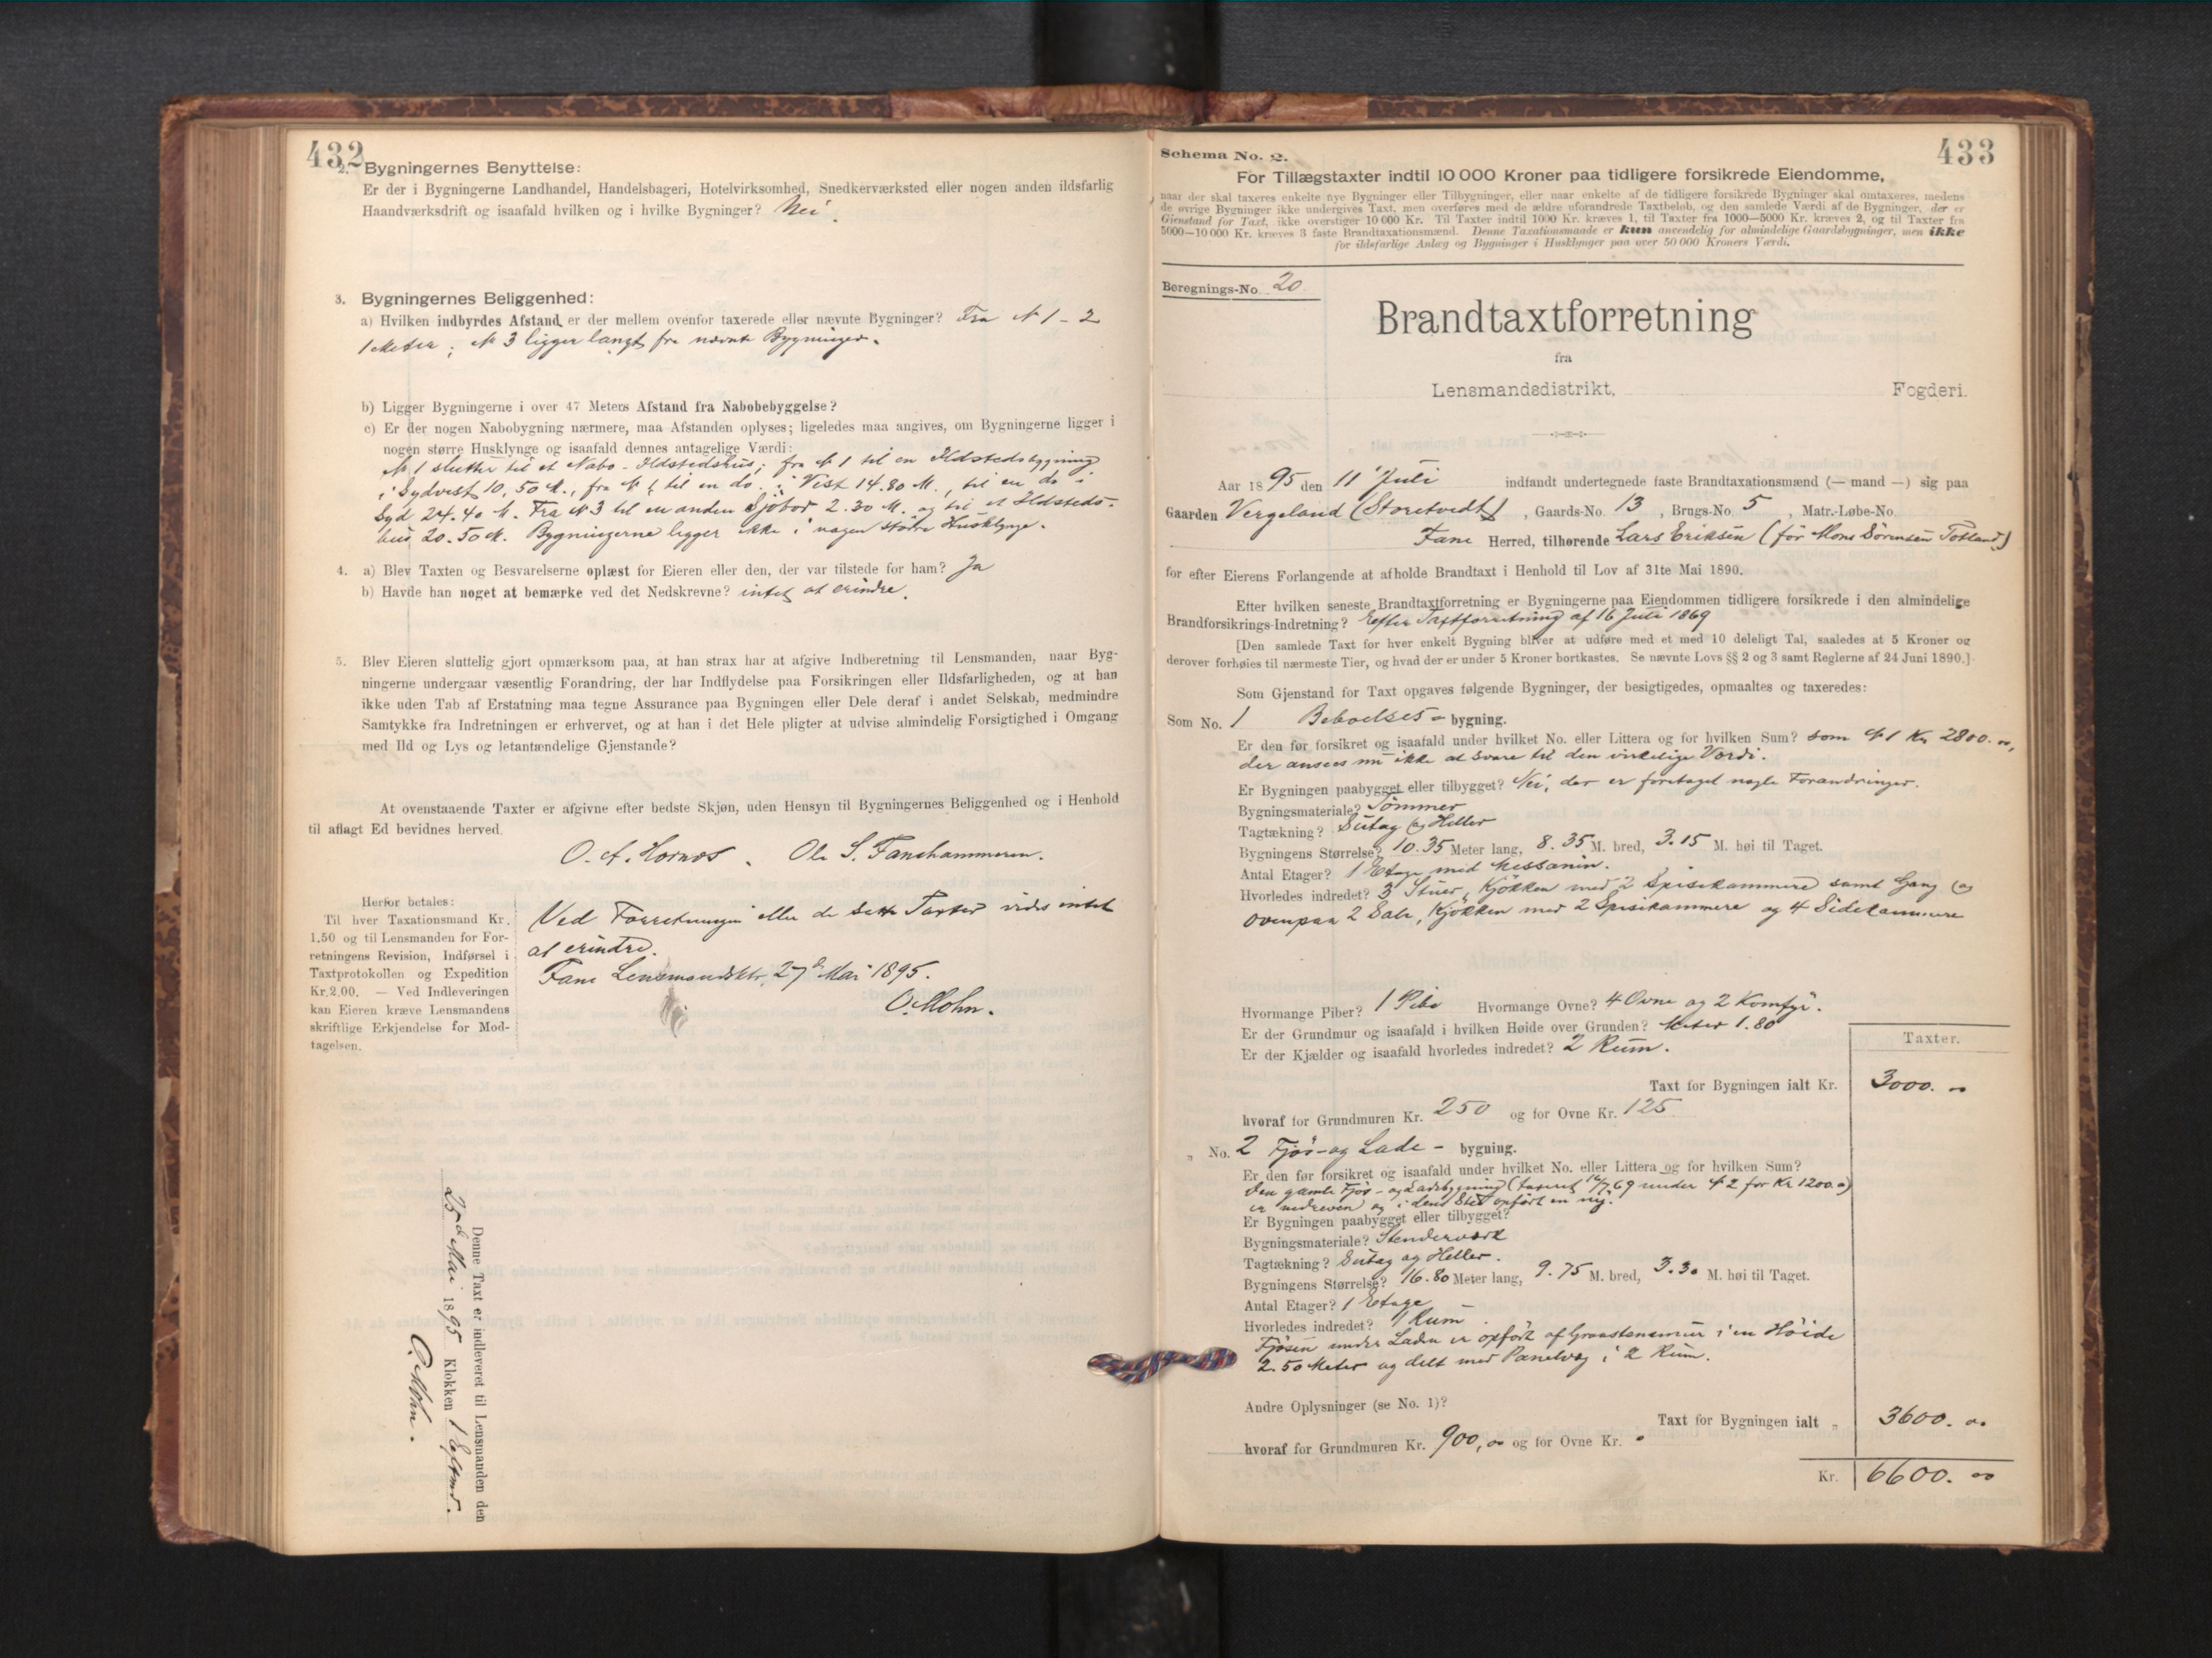 432
2. Bygningernes Benyttelse:
Er der i Bygningerne Landhandel, Handelsbageri, Hotelvirksomhed, Snedkerværksted eller nogen anden ildsfarlig
Haandværksdrift og isaafald hvilken og i hvilke Bygninger? Nei.
3. Bygningernes Beliggenhed:
a) Hvilken indbyrdes Afstand er der mellem ovenfor taxerede eller nævnte Bygninger? Fra № 1 - 2
1 Meter; № 3 ligger langt fra nævnte Bygninger.
b) Ligger Bygningerne i over 47 Meters Afstand fra Nabobebyggelse?
c) Er der nogen Nabobygning nærmere, maa Afstanden oplyses; ligeledes maa angives, om Bygningerne ligger i
nogen større Husklynge og isaafald dennes antagelige Værdi:
№ 1 slutter til et Nabo-Ildstedshus; fra № 1 til en Ildstedsbygning
i Sydvest 10,50 M., fra № 1 til en do. i Vest 14.80 M., til en do i
Syd 24.40 M. Fra № 3 til en anden Sjøbod 2.30 M. og til et Ildsteds-
hus 20.50 M. Bygningerne ligger ikke i nogen større Husklynge.
4. a) Blev Taxten og Besvarelserne oplæst for Eieren eller den, der var tilstede for ham? Ja
b) Havde han noget at bemærke ved det Nedskrevne? intet at erindre.
5. Blev Eieren sluttelig gjort opmærksom paa, at han strax har at afgive Indberetning til Lensmanden, naar Byg-
ningerne undergaar væsentlig Forandring, der har Indflydelse paa Forsikringen eller Ildsfarligheden, og at han
ikke uden Tab af Erstatning maa tegne Assurance paa Bygningen eller Dele deraf i andet Selskab, medmindre
Samtykke fra Indretningen er erhvervet, og at han i det Hele pligter at udvise almindelig Forsigtighed i Omgang
med Ild og Lys og letantændelige Gjenstande?
At ovenstaaende Taxter er afgivne efter bedste Skjøn, uden Hensyn til Bygningernes Beliggenhed og i Henhold
til aflagt Ed bevidnes herved.
O. A. Hornæs. Ole S. Fanehammeren.
Herfor betales:
Til hver Taxationsmand Kr.
1.50 og til Lensmanden for For-
retningens Revision, Indførsel i
Taxtprotokollen og Expedition
Kr. 2.00. — Ved Indleveringen
kan Eieren kræve Lensmandens
skriftlige Erkjendelse for Mod-
tagelsen.
Ved Forretningen eller de satte Taxter vides intet
at erindre.
Fane Lensmandsktr, 27de Mai 1895.
O. Mohn.
Denne Taxt er indleveret til Lensmanden den
25de Mai 1895 Klokken 1 Efterm.
O. Mohn.
433
Schema No. 2.
For Tillægstaxter indtil 10 000 Kroner paa tidligere forsikrede Eiendomme,
naar der skal taxeres enkelte nye Bygninger eller Tilbygninger, eller naar enkelte af de tidligere forsikrede Bygninger skal omtaxeres, medens
de øvrige Bygninger ikke undergives Taxt, men overføres med de ældre uforandrede Taxtbeløb, og den samlede Værdi af de Bygninger, der er
Gjenstand for Taxt, ikke overstiger 10 000 Kr. Til Taxter indtil 1000 Kr. kræves 1, til Taxter fra 1000—5000 Kr. kræves 2, og til Taxter fra
5000—10 000 Kr. kræves 3 faste Brandtaxationsmænd. Denne Taxationsmaade er kun anvendelig for almindelige Gaardsbygninger, men ikke
for ildsfarlige Anlæg og Bygninger i Husklynger paa over 50 000 Kroners Værdi.
Beregnings-No. 20
Brandtaxtforretning
fra
Lensmandsdistrikt, Fogderi.
Aar 1895 den 11 Juli indfandt undertegnede faste Brandtaxationsmænd (— mand —) sig paa
Gaarden Vergeland (Storetvedt), Gaards-No. 13, Brugs-No. 5, Matr.-Løbe-No.
Fane Herred, tilhørende Lars Eriksen (før Mons Sørensen Totland)
for efter Eierens Forlangende at afholde Brandtaxt i Henhold til Lov af 31te Mai 1890.
Efter hvilken seneste Brandtaxtforretning er Bygningerne paa Eiendommen tidligere forsikrede i den almindelige
Brandforsikrings-Indretning? Efter Taxtforretning af 16 Juli 1869
[Den samlede Taxt for hver enkelt Bygning bliver at udføre med et med 10 deleligt Tal, saaledes at 5 Kroner og
derover forhøies til nærmeste Tier, og hvad der er under 5 Kroner bortkastes. Se nævnte Lovs §§ 2 og 3 samt Reglerne af 24 Juni 1890.]
Som Gjenstand for Taxt opgaves følgende Bygninger, der besigtigedes, opmaaltes og taxeredes:
Som No. 1 Beboelses- bygning.
Er den før forsikret og isaafald under hvilket No. eller Littera og for hvilken Sum? som № 1 Kr 2800.00,
der ansees nu ikke at svare til den virkelige Værdi.
Er Bygningen paabygget eller tilbygget? Nei, der er foretaget nogle Forandringer.
Bygningsmateriale? Tømmer
Tagtækning? Sutag og Heller
Bygningens Størrelse? 10.35 Meter lang, 8.35 M. bred, 3.15 M. høi til Taget.
Antal Etager? 1 Etage med Messanin.
Hvorledes indredet? 3 Stuer, Kjøkken med 2 Spisekammere samt Gang og
ovenpaa 2 Sale, Kjøkken med 2 Spisekammere og 4 Sidekammere
Hvormange Piber? 1 Pibe Hvormange Ovne? 4 Ovne og 2 Komfyr.
Er der Grundmur og isaafald i hvilken Høide over Grunden? Meter 1.80
Er der Kjælder og isaafald hvorledes indredet? 2 Rum.
Taxter.
Taxt for Bygningen ialt Kr. 3000.00
hvoraf for Grundmuren Kr. 250 og for Ovne Kr. 125
„ No. 2 Fjøs- og Lade- bygning.
Er den før forsikret og isaafald under hvilket No. eller Littera og for hvilken Sum?
Den gamle Fjøs- og Ladebygning (taxeret 16/7 69 under № 2 for Kr 1200.00)
er nedreven og i dens Sted opført en ny.
Er Bygningen paabygget eller tilbygget?
Bygningsmateriale? Stenderværk
Tagtækning? Sutag og Heller.
Bygningens Størrelse? 16.80 Meter lang, 9.75 M. bred, 3.30 M. høi til Taget.
Antal Etager? 1 Etage
Hvorledes indredet? 1 Rum
Fjøsen under Laden er opført af Graastensmur i en Høide
2.50 Meter og delt med Panelvæg i 2 Rum.
Andre Oplysninger (se No. 1)?
Taxt for Bygningen ialt „ 3600.00
hvoraf for Grundmuren Kr. 900,00 og for Ovne Kr.
Kr. 6600.00